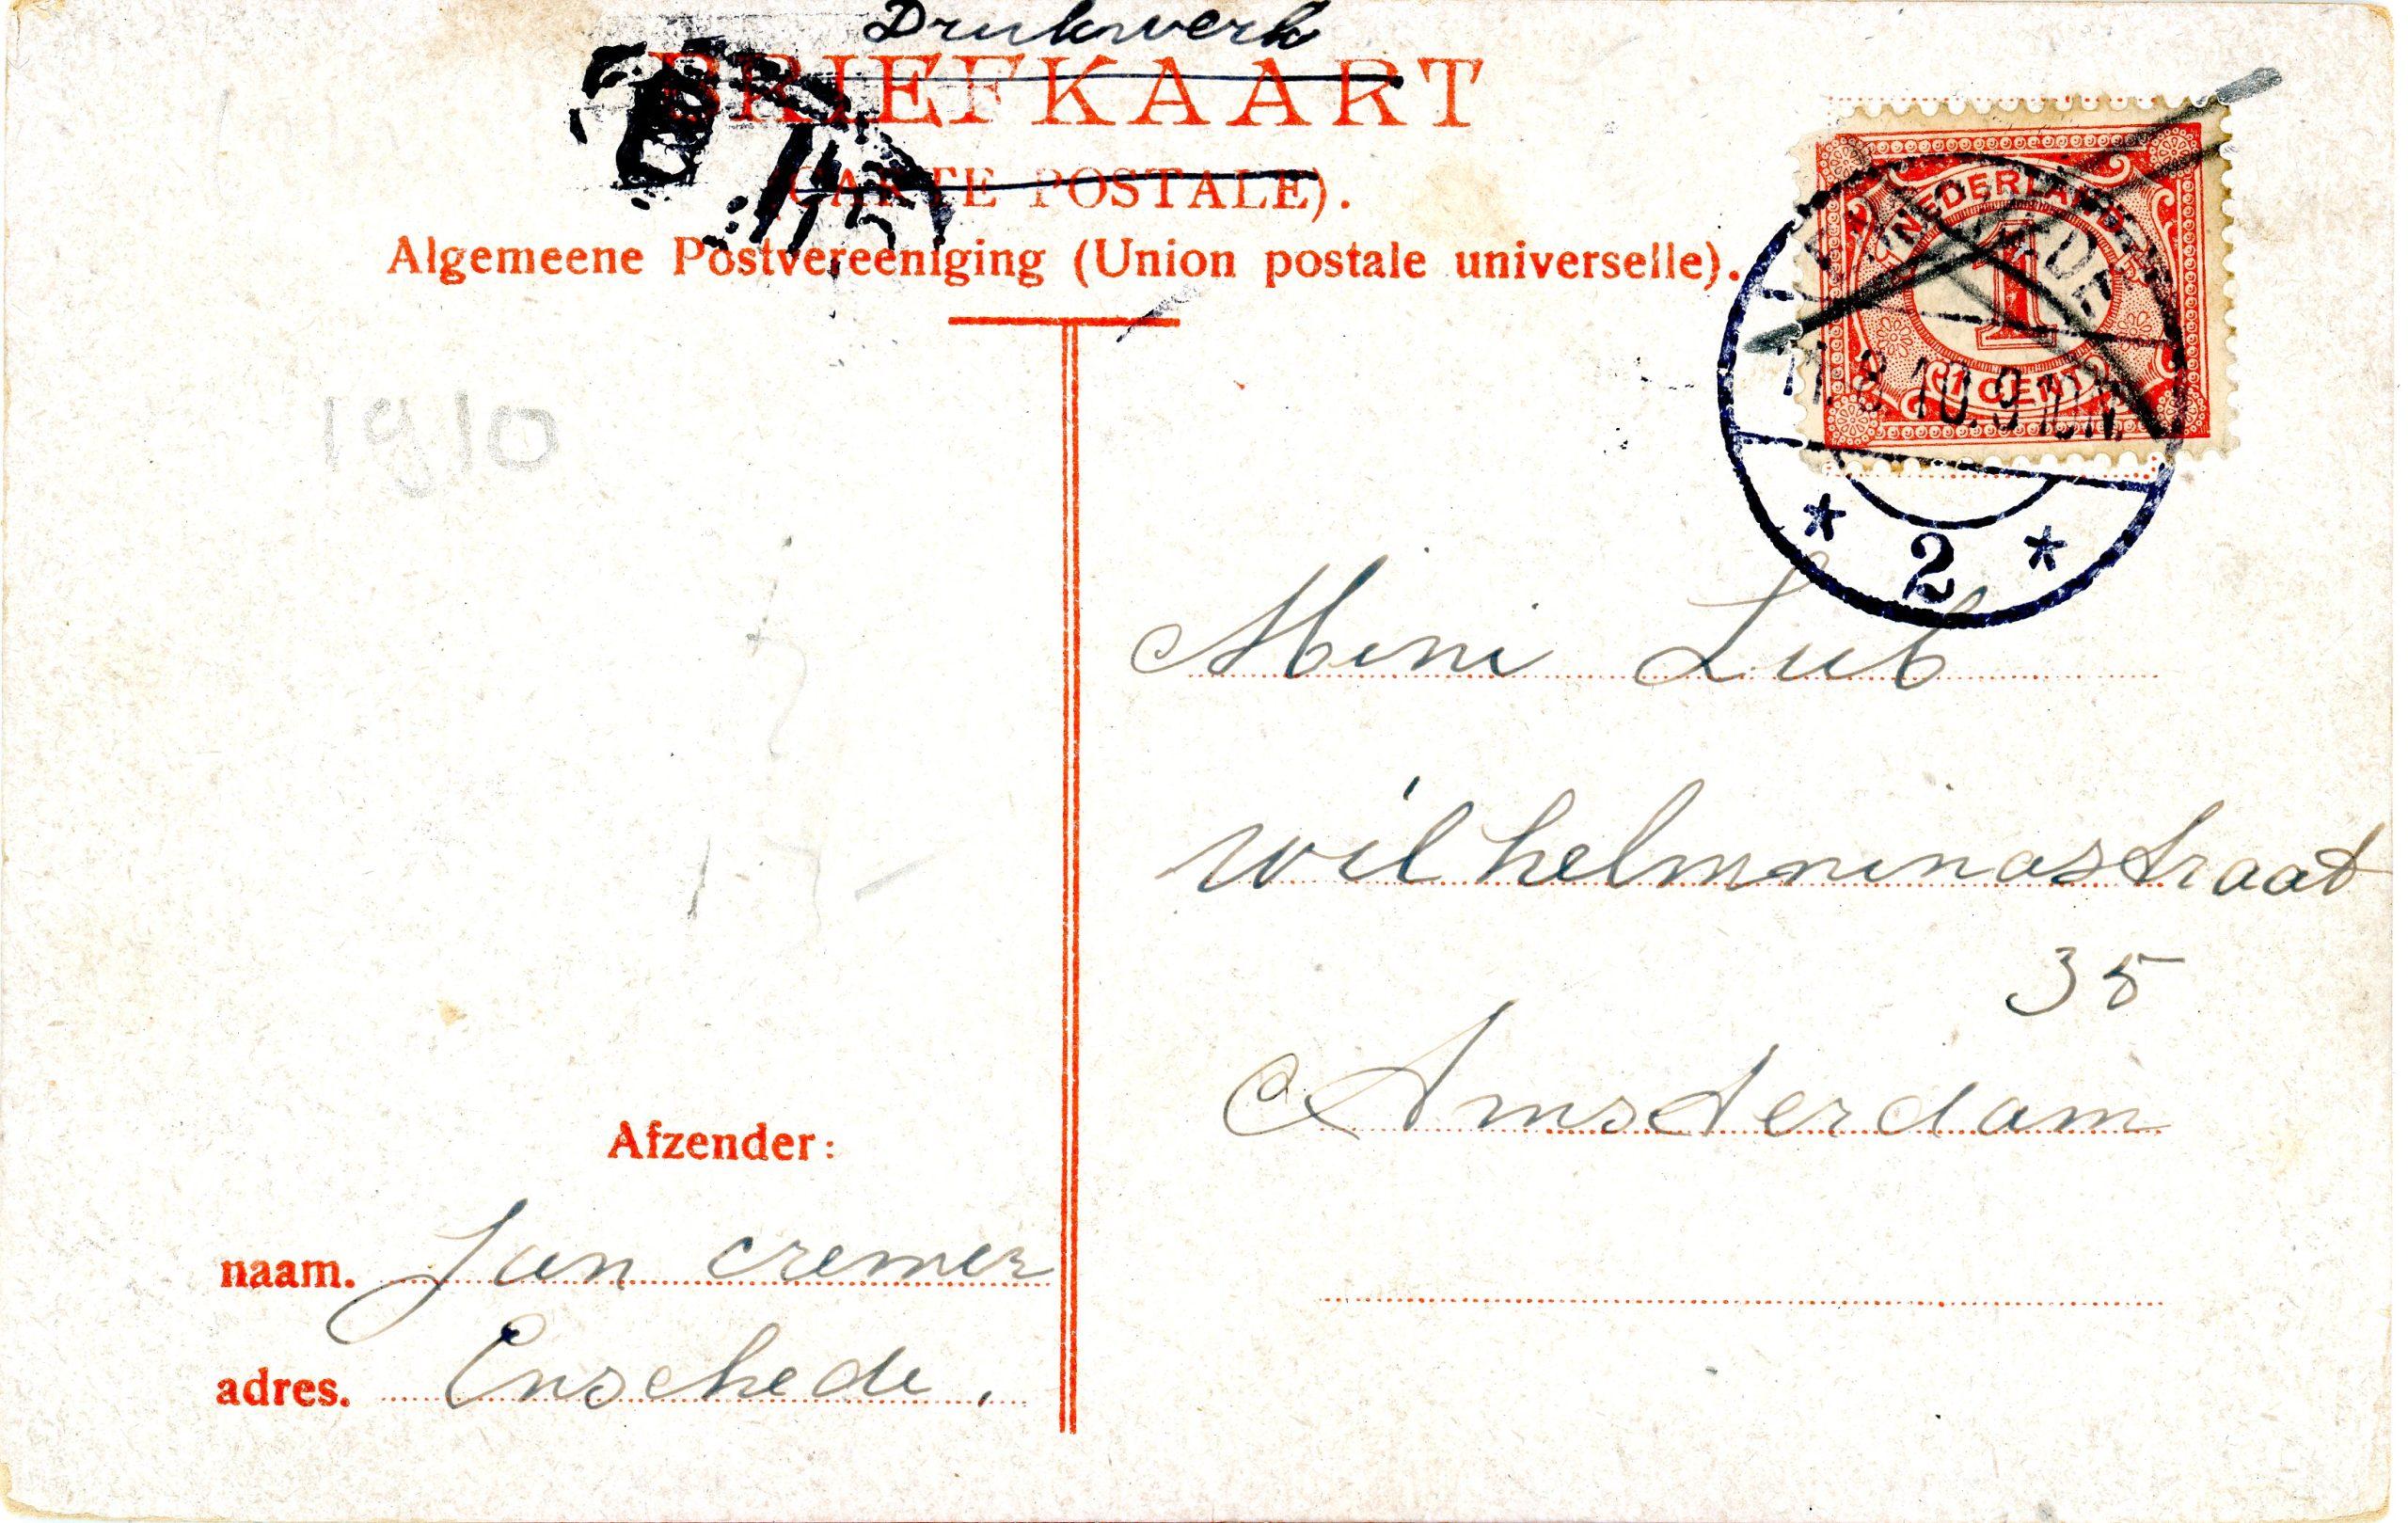 Drukwerk
BRIEFKAART
(CARTE POSTALE).
Algemeene Postvereeniging (Union postale universelle).
NEDERLAND
1
1 CENT
11.8.10.9-10N.
2
1910
Mini Lub
Wilhelmninastraat
35
Amsterdam
Afzender:
naam. Jan cremer
adres. Enschede.